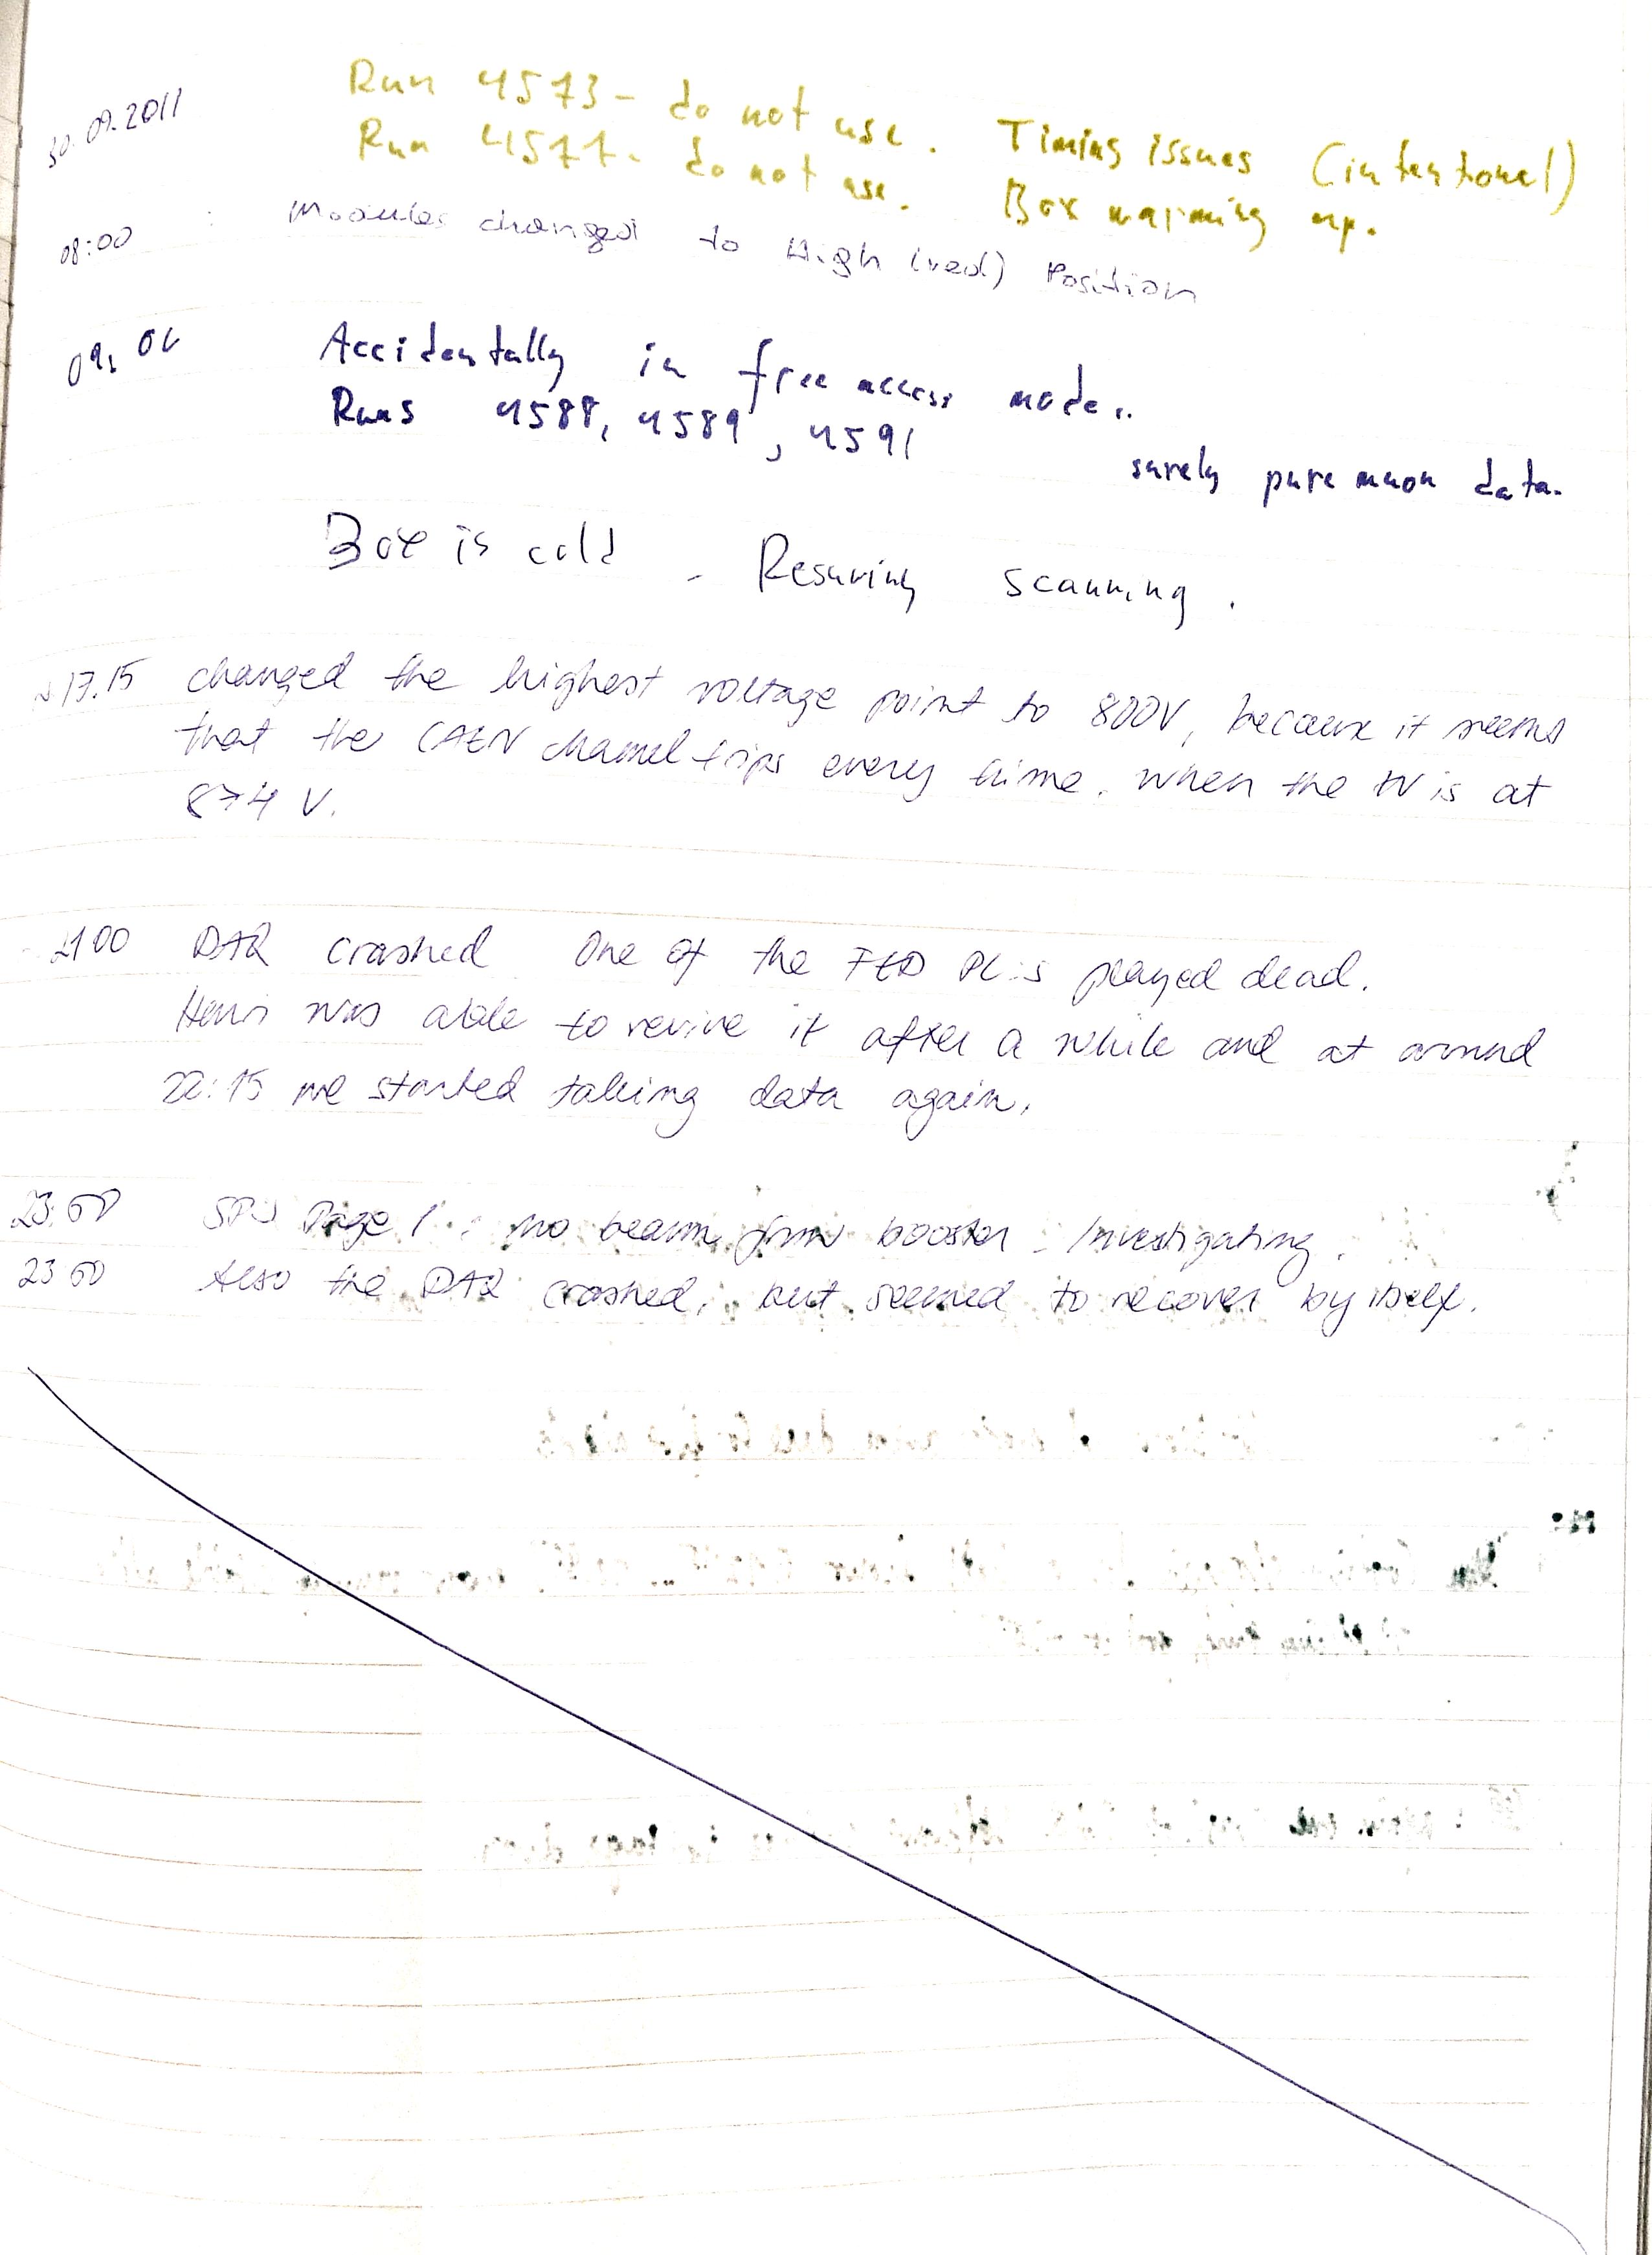 30.09.2011
Run 4573 - do not use. Timing issues (intentional)
Run 4577 - do not use. Box warming up.
08:00 : Modules changed to High (red) Position
Accidentally in free access mode..
Runs 4588, 4589, 4591
surely pure muon data.
Box is cold - Resuming scanning.
~17.15 changed the highest voltage point to 800V, because it seems
that the CAEN channel trips every time, when the HV is at
874 V.
2100 DAQ crashed One of the FED PC:s played dead.
was able to revive it after a while and at around
22:15 we started taking data again.
SPS Page 1: no beam from booster - Investigating.
Also the DAQ crashed, but seemed to recover by itself.